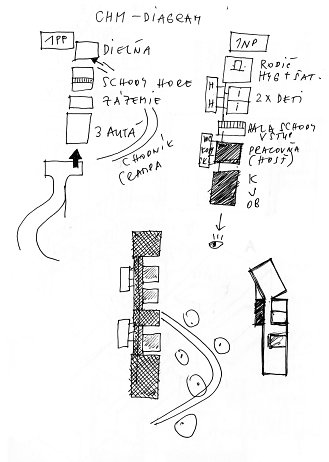 CHM-DIAGRAM
1PP
DIELŇA
SCHODY HORE
ZÁZEMIE
3 AUTÁ
CHODNÍK
RAMPA
1NP
RODIČ
HYG + ŠAT.
2x DETI
HALA SCHODY
VSTUP
PRACOVŇA
(HOSŤ)
K
J
OB